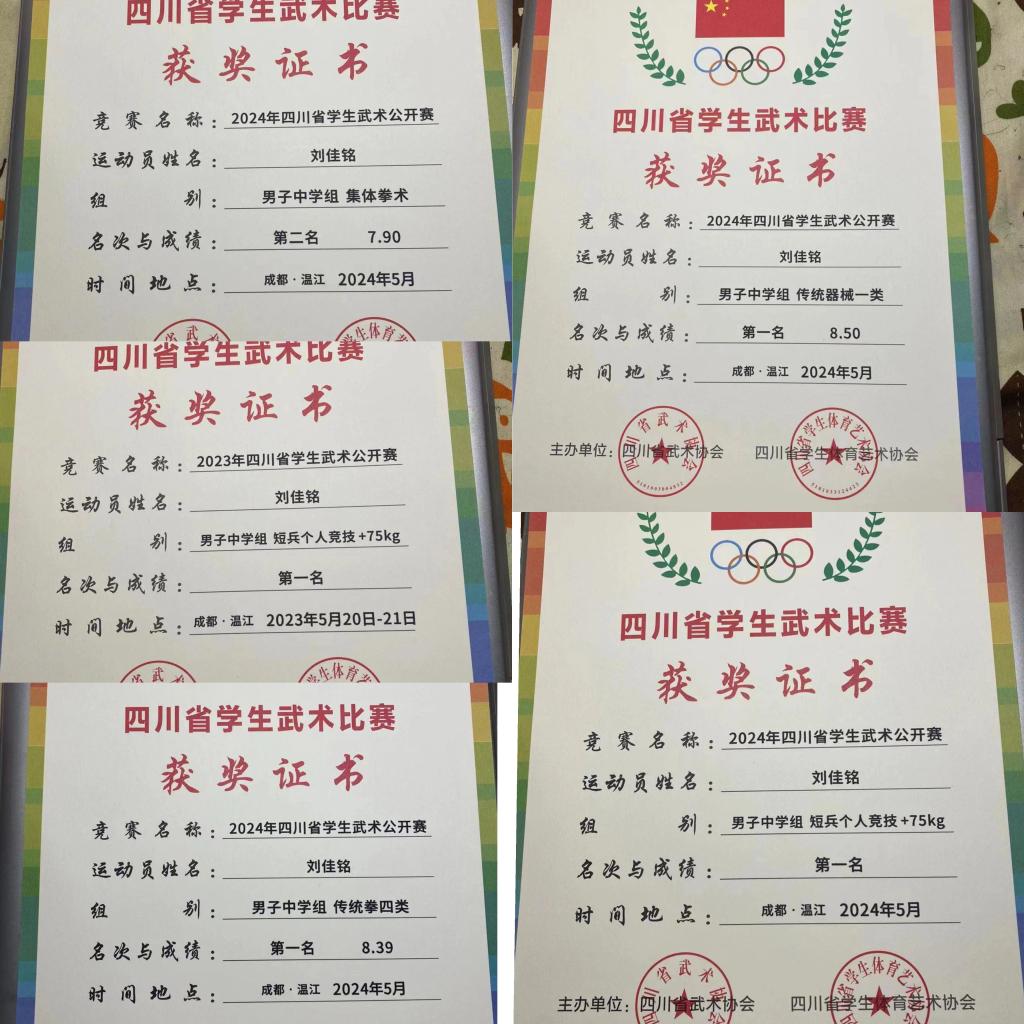 四川省学生武术比赛
获奖证书
竞赛名称：2024年四川省学生武术公开赛
运动员姓名：刘佳铭
组别：男子中学组 集体拳术
名次与成绩：第二名 7.90
时间地点：成都·温江 2024年5月
四川省学生武术比赛
获奖证书
竞赛名称：2023年四川省学生武术公开赛
运动员姓名：刘佳铭
组别：男子中学组 短兵个人竞技+75kg
名次与成绩：第一名
时间地点：成都·温江 2023年5月20日-21日
四川省学生武术比赛
获奖证书
竞赛名称：2024年四川省学生武术公开赛
运动员姓名：刘佳铭
组别：男子中学组 传统拳四类
名次与成绩：第一名 8.39
时间地点：成都·温江 2024年5月
四川省学生武术比赛
获奖证书
竞赛名称：2024年四川省学生武术公开赛
运动员姓名：刘佳铭
组别：男子中学组 传统器械一类
名次与成绩：第一名 8.50
时间地点：成都·温江 2024年5月
主办单位：四川省武术协会 四川省学生体育艺术协会
四川省武术协会
四川省学生体育艺术协会
四川省学生武术比赛
获奖证书
竞赛名称：2024年四川省学生武术公开赛
运动员姓名：刘佳铭
组别：男子中学组 短兵个人竞技+75kg
名次与成绩：第一名
时间地点：成都·温江 2024年5月
主办单位：四川省武术协会 四川省学生体育艺术协会